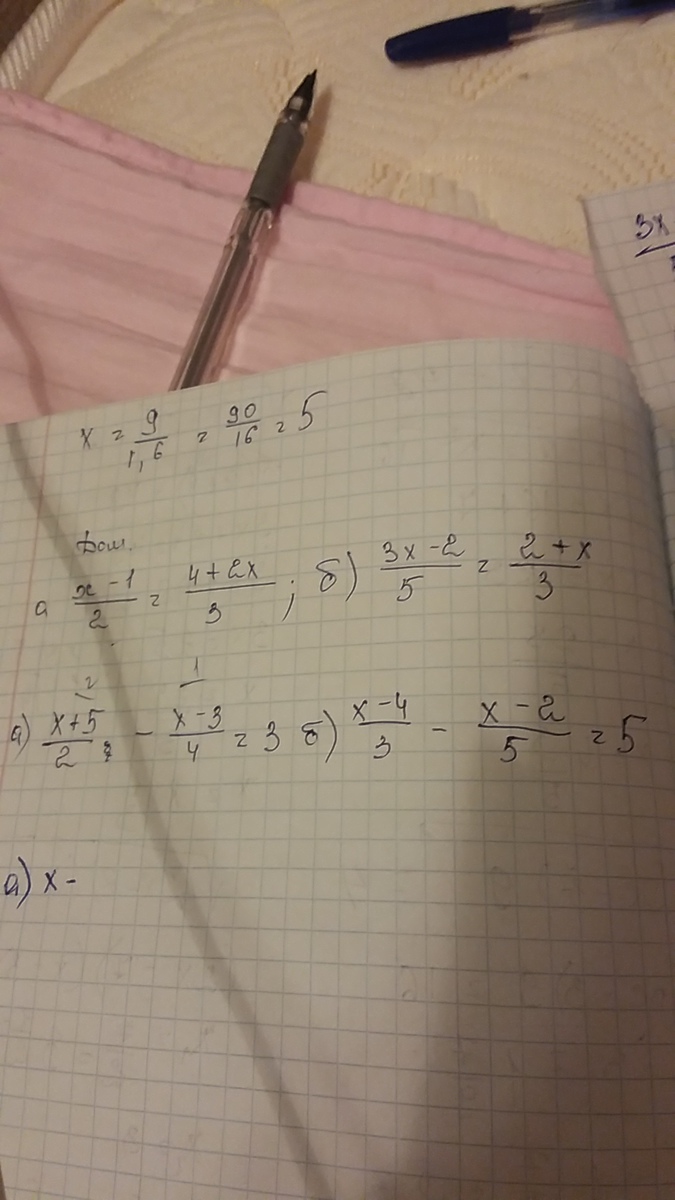 3x
x = 9/1,6 = 90/16 = 5
Дом.
а x-1/2 = 4+2x/3 ; б) 3x-2/5 = 2+x/3
2 1
а) x+5/2 - x-3/4 = 3 б) x-4/3 - x-2/5 = 5
а) x -